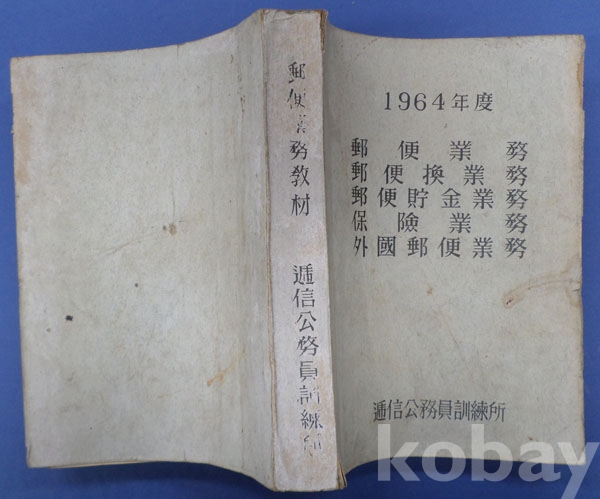 郵便業務教材
遞信公務員訓練所
1964年度
郵便業務
郵便換業務
郵便貯金業務
保險業務
外國郵便業務
遞信公務員訓練所
kobay